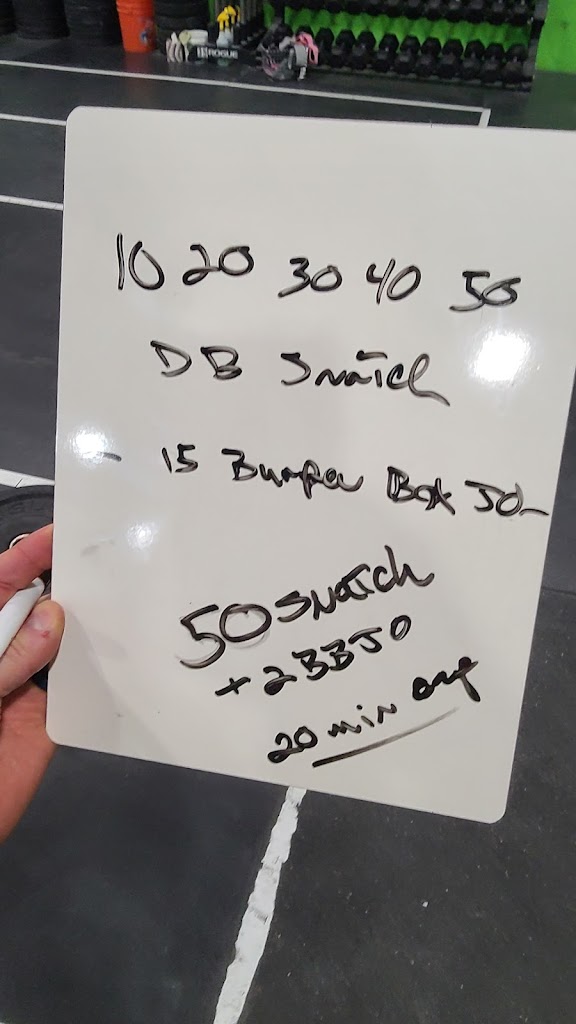 ROGUE
10 20 30 40 50
DB Snatch
15 Bumper Box JO
50 Snatch
+ 2 BBJO
20 min